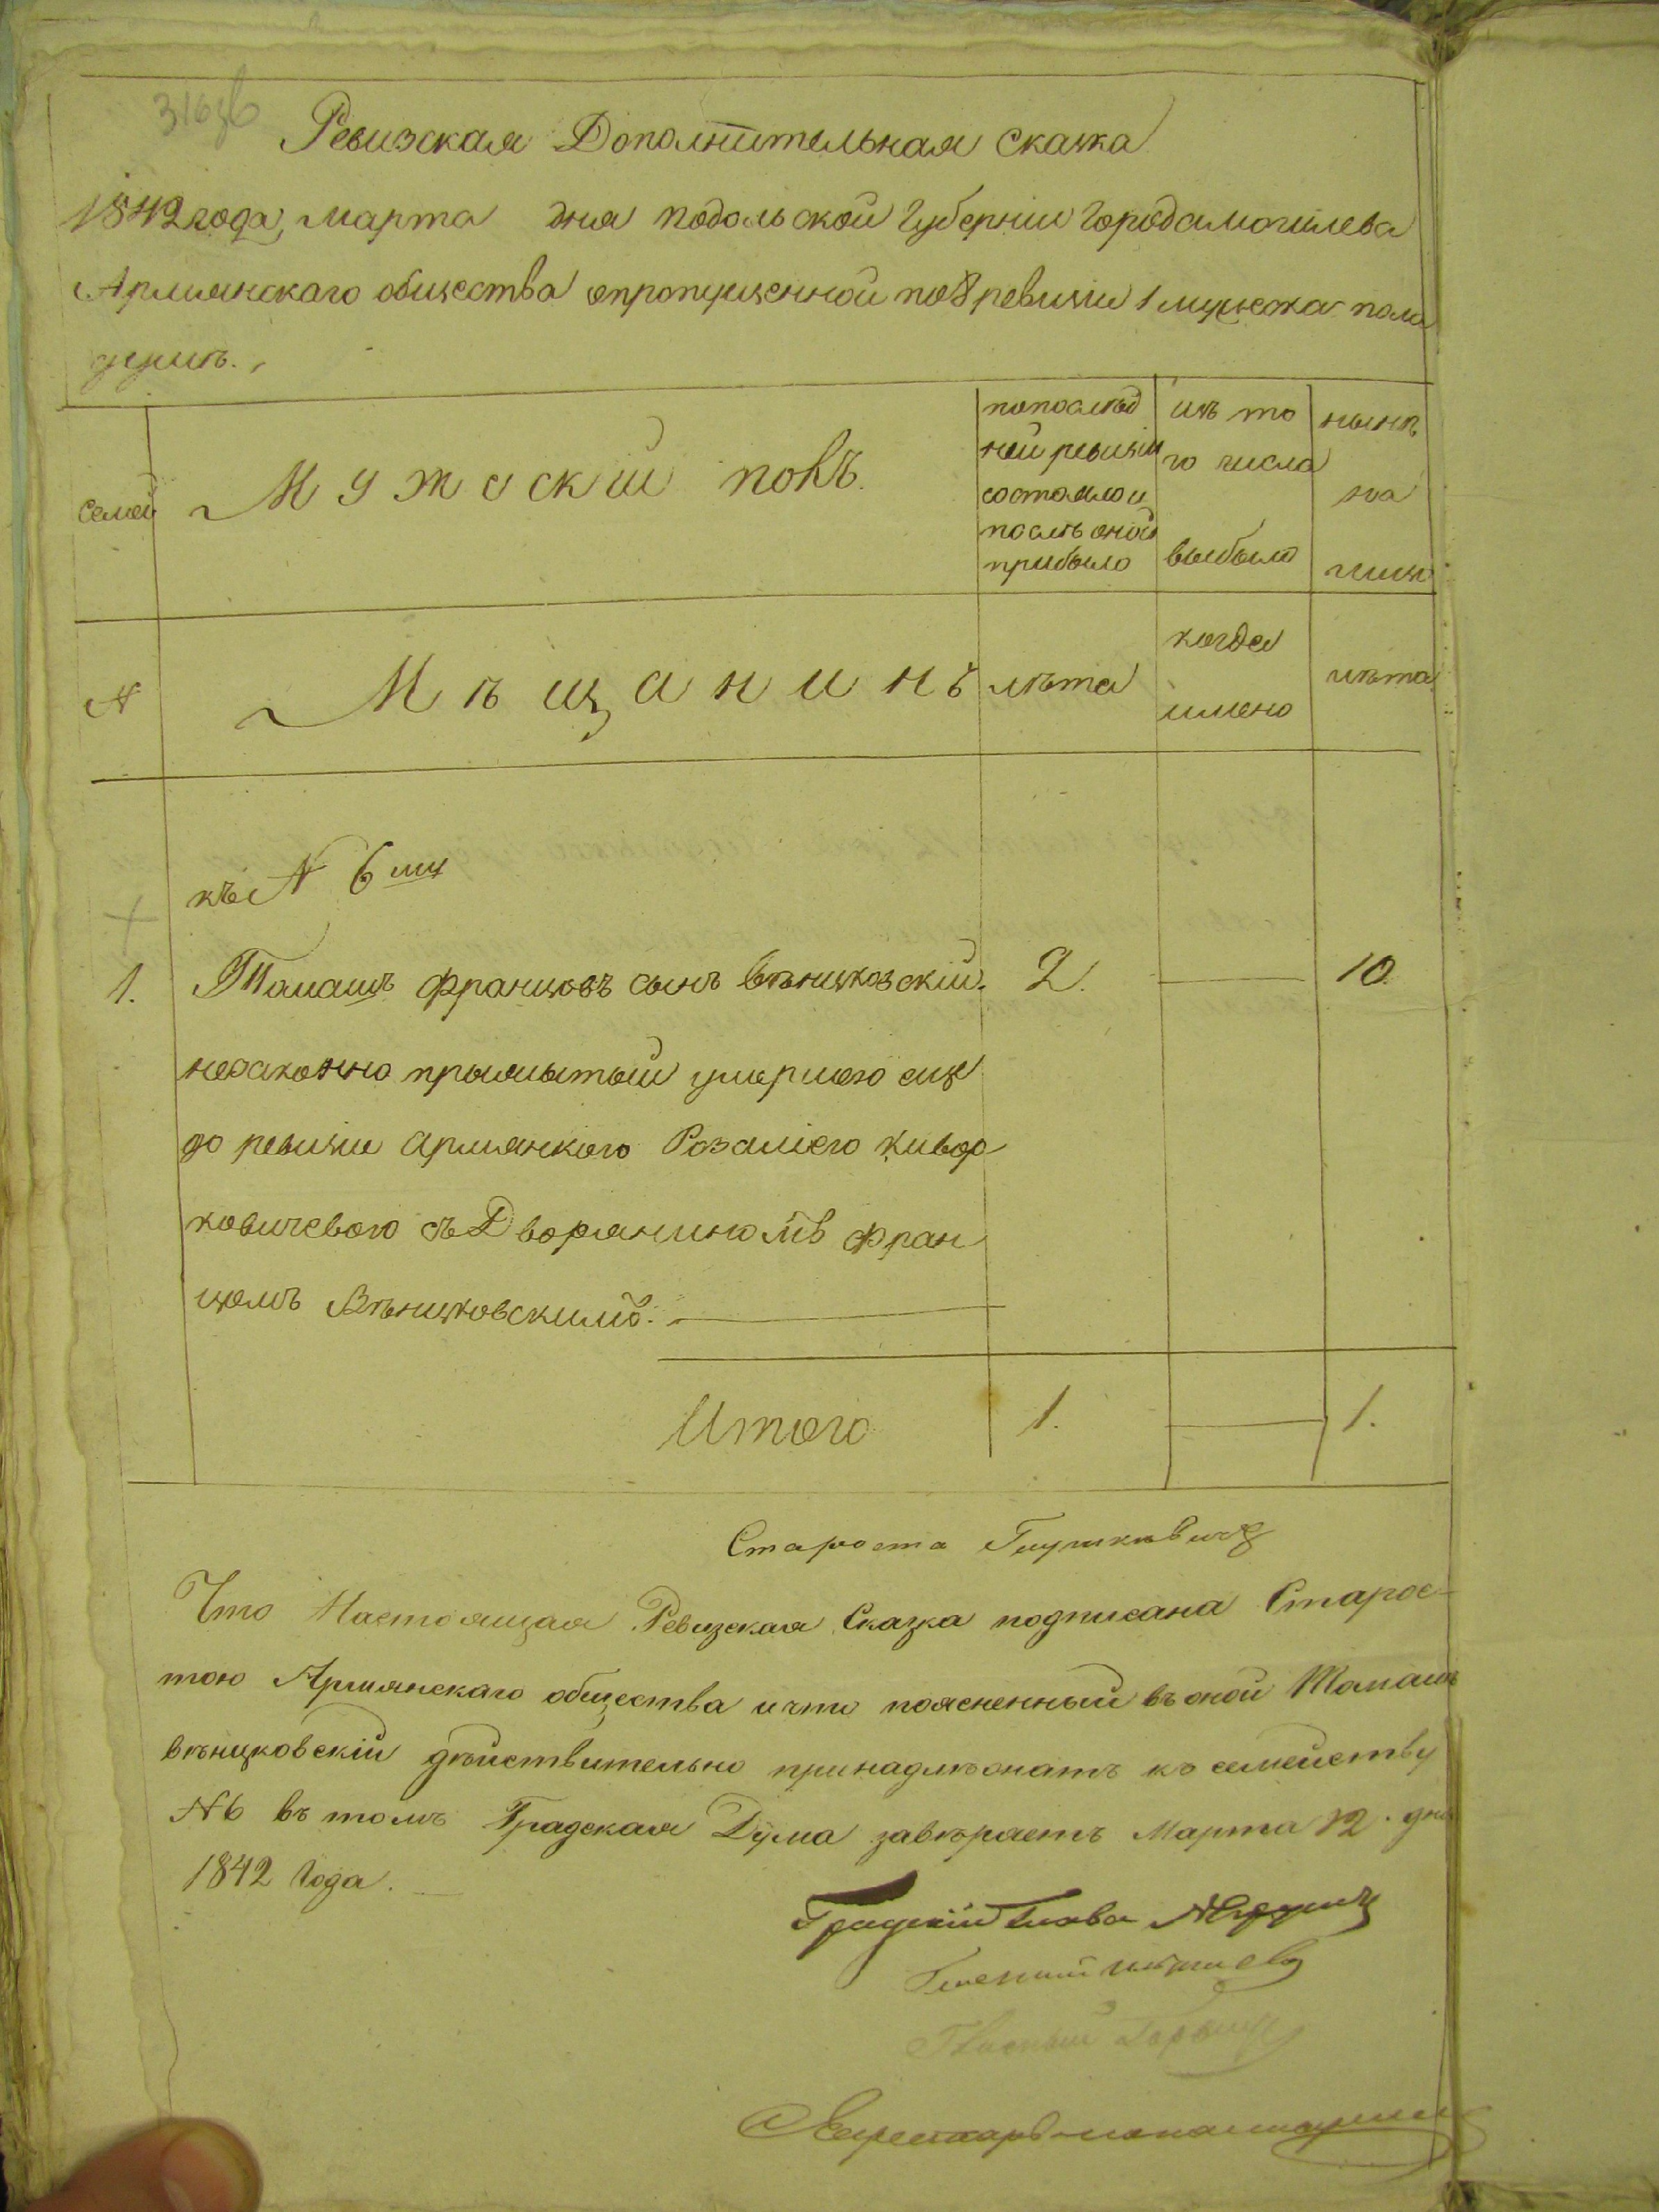 Ревизская Дополнительная скаска
1842 года, марта дня подольской Губерніи Города могилева
Армянскаго общества опропущенной по 8 ревизіи 1 мужеска пола
души.
семей
Мужеский полъ
попослѣд
ней ревизіи
состояло и
послѣ оной
прибыло
изъ то
го числа
выбыло
нынѣ
на
лицо
N
Мѣщанинъ
лѣта
когда
имено
лѣта
къ N 6му
1. Томашъ Францовъ сынъ Вѣнцковскій. 2. — 10
незаконно прижитый умершею еще
до ревизіи Армянкою Розаліею Кивор
ковичевою съ Дворяниномъ Фран
цомъ Вѣнцковскимъ.
Итого 1. — 1.
Староста
Что Настоящая Ревизская Сказка подписана Старос-
тою Армянскаго общества и что поясненный въ оной Томашъ
Вѣнцковскій дѣйствительно принадлежатъ къ семейству
N 6 въ томъ Градская Дума завѣряетъ Марта 12. дня
1842 Года.
Градскій Глава
Гласный
Гласный
Секретарь